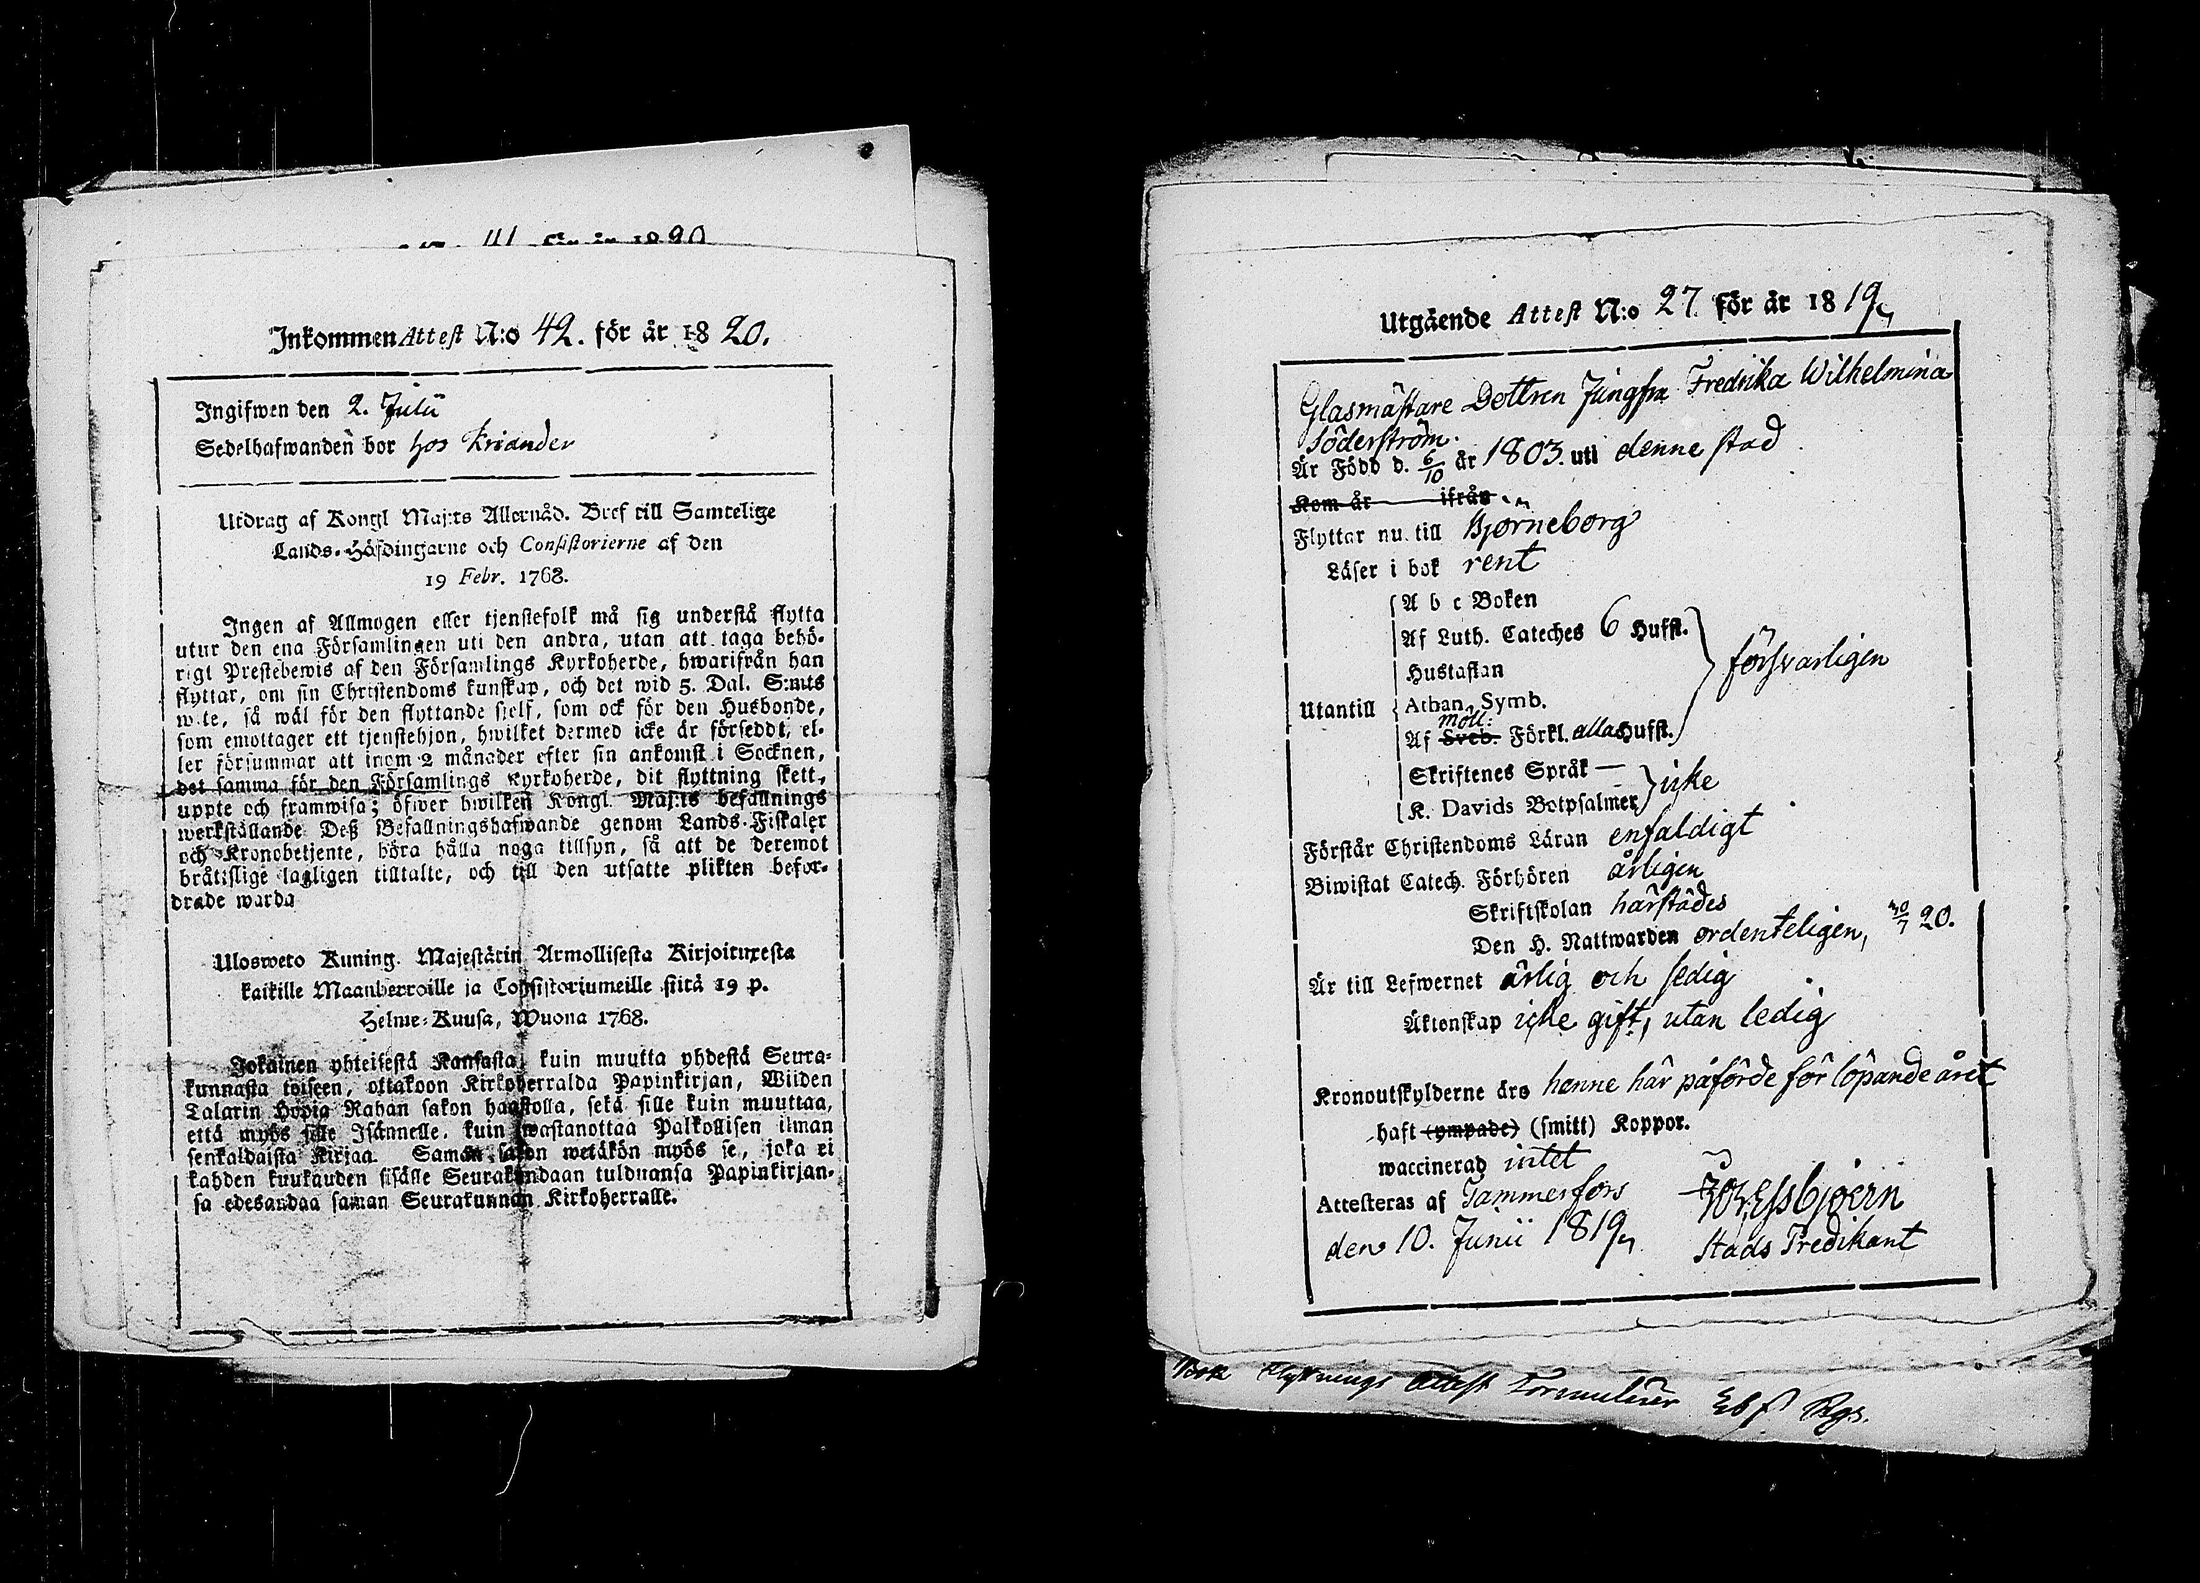 111 för år 1820
Inkommen Attest N:o 42. för år 1820.
Ingifwen den 2. Julii
Sedelhafwanden bor hos Kriander
Utdrag af Kongl Maj:ts Allernåd. Bref till Samtelige
Lands-Höfdingarne och Consistorierne af den
19 Febr. 1768.
Ingen af Allmogen eller tjenstefolk må sig understå flytta
utur den ena Församlingen uti den andra, utan att taga behö-
rigt Prestebewis af den Församlings Kyrkoherde, hwarifrån han
flyttar, om sin Christendoms kunskap, och det wid 5. Dal. S:mts
wite, så wäl för den flyttande sjelf, som ock för den Husbonde,
som emottager ett tjenstehjon, hwilket dermed icke är försedt, el-
ler försummar att inom 2 månader efter sin ankomst i Socknen,
det samma för den Församlings Kyrkoherde, dit flyttning skett,
uppte och framwisa; öfwer hwilken Kongl. Maj:ts befallnings
werkställande Deß Befallningshafwande genom Lands-Fiskaler
och Kronobetjente, böra hålla noga tillsyn, så att de deremot
bråttslige lagligen tilltalte, och till den utsatte plikten befor-
drade warda
Ulosweto Kuning. Majestätin Armollisesta Kirjoituxesta
kaikille Maanherroille ja Consistoriumeille siitä 19 p.
Helme-Kuusa, Wuona 1768.
Jokainen yhteisestä Kansasta, kuin muutta yhdestä Seura-
kunnasta toiseen, ottakoon Kirkoherralda Papinkirjan, Wiiden
Talarin Hopia Rahan sakon haastolla, sekä sille kuin muuttaa,
että myös sille Isännelle, kuin wastanottaa Palkollisen ilman
senkaldaista Kirjaa. Saman sakon wetäkön myös se, joka ei
kahden kuukauden sisälle Seurakundaan tulduansa Papinkirjan-
sa edesandaa saman Seurakunnan Kirkoherralle.
Utgående Attest N:o 27 för år 1819
Glasmästare Dottren Jungfru Fredrika Wilhelmina
Söderström.
Är Född d. 6/10 år 1803. uti denne stad
Kom år ifrån
Flyttar nu till Bjorneborg
Läser i bok rent
A b c Boken
Af Luth. Cateches 6 Hufst.
Hustaflan
försvarligen
Utantill Athan. Symb.
moll:
Af Sveb. Förkl. alla Hufst.
Skriftenes Språk —
icke
K. Davids Botpsalmer
Förstår Christendoms Läran enfaldigt
Biwistat Catech. Förhören årligen
Skriftskolan härstädes
Den H. Nattwarden ordenteligen, 30/7 20.
Är till Lefwernet ärlig och sedig
Äktenskap icke gift, utan ledig
Kronoutskylderne äro henne här påförde för löpande året
haft (ympade) (smitt) Koppor.
waccinerad intet
Attesteras af Tammerfors
den 10. Junii 1819
Stads Predikant
Flyttnings Attest Formulerer